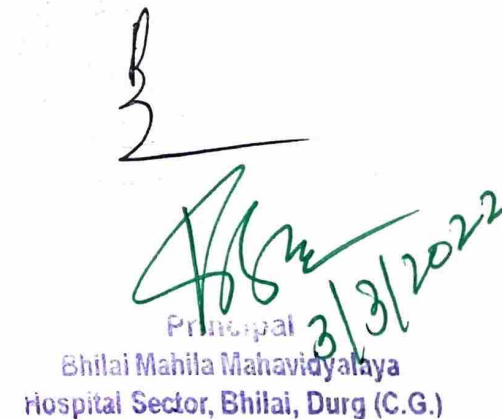 3/3/2022
Principal
Bhilai Mahila Mahavidyalaya
Hospital Sector, Bhilai, Durg (C.G.)